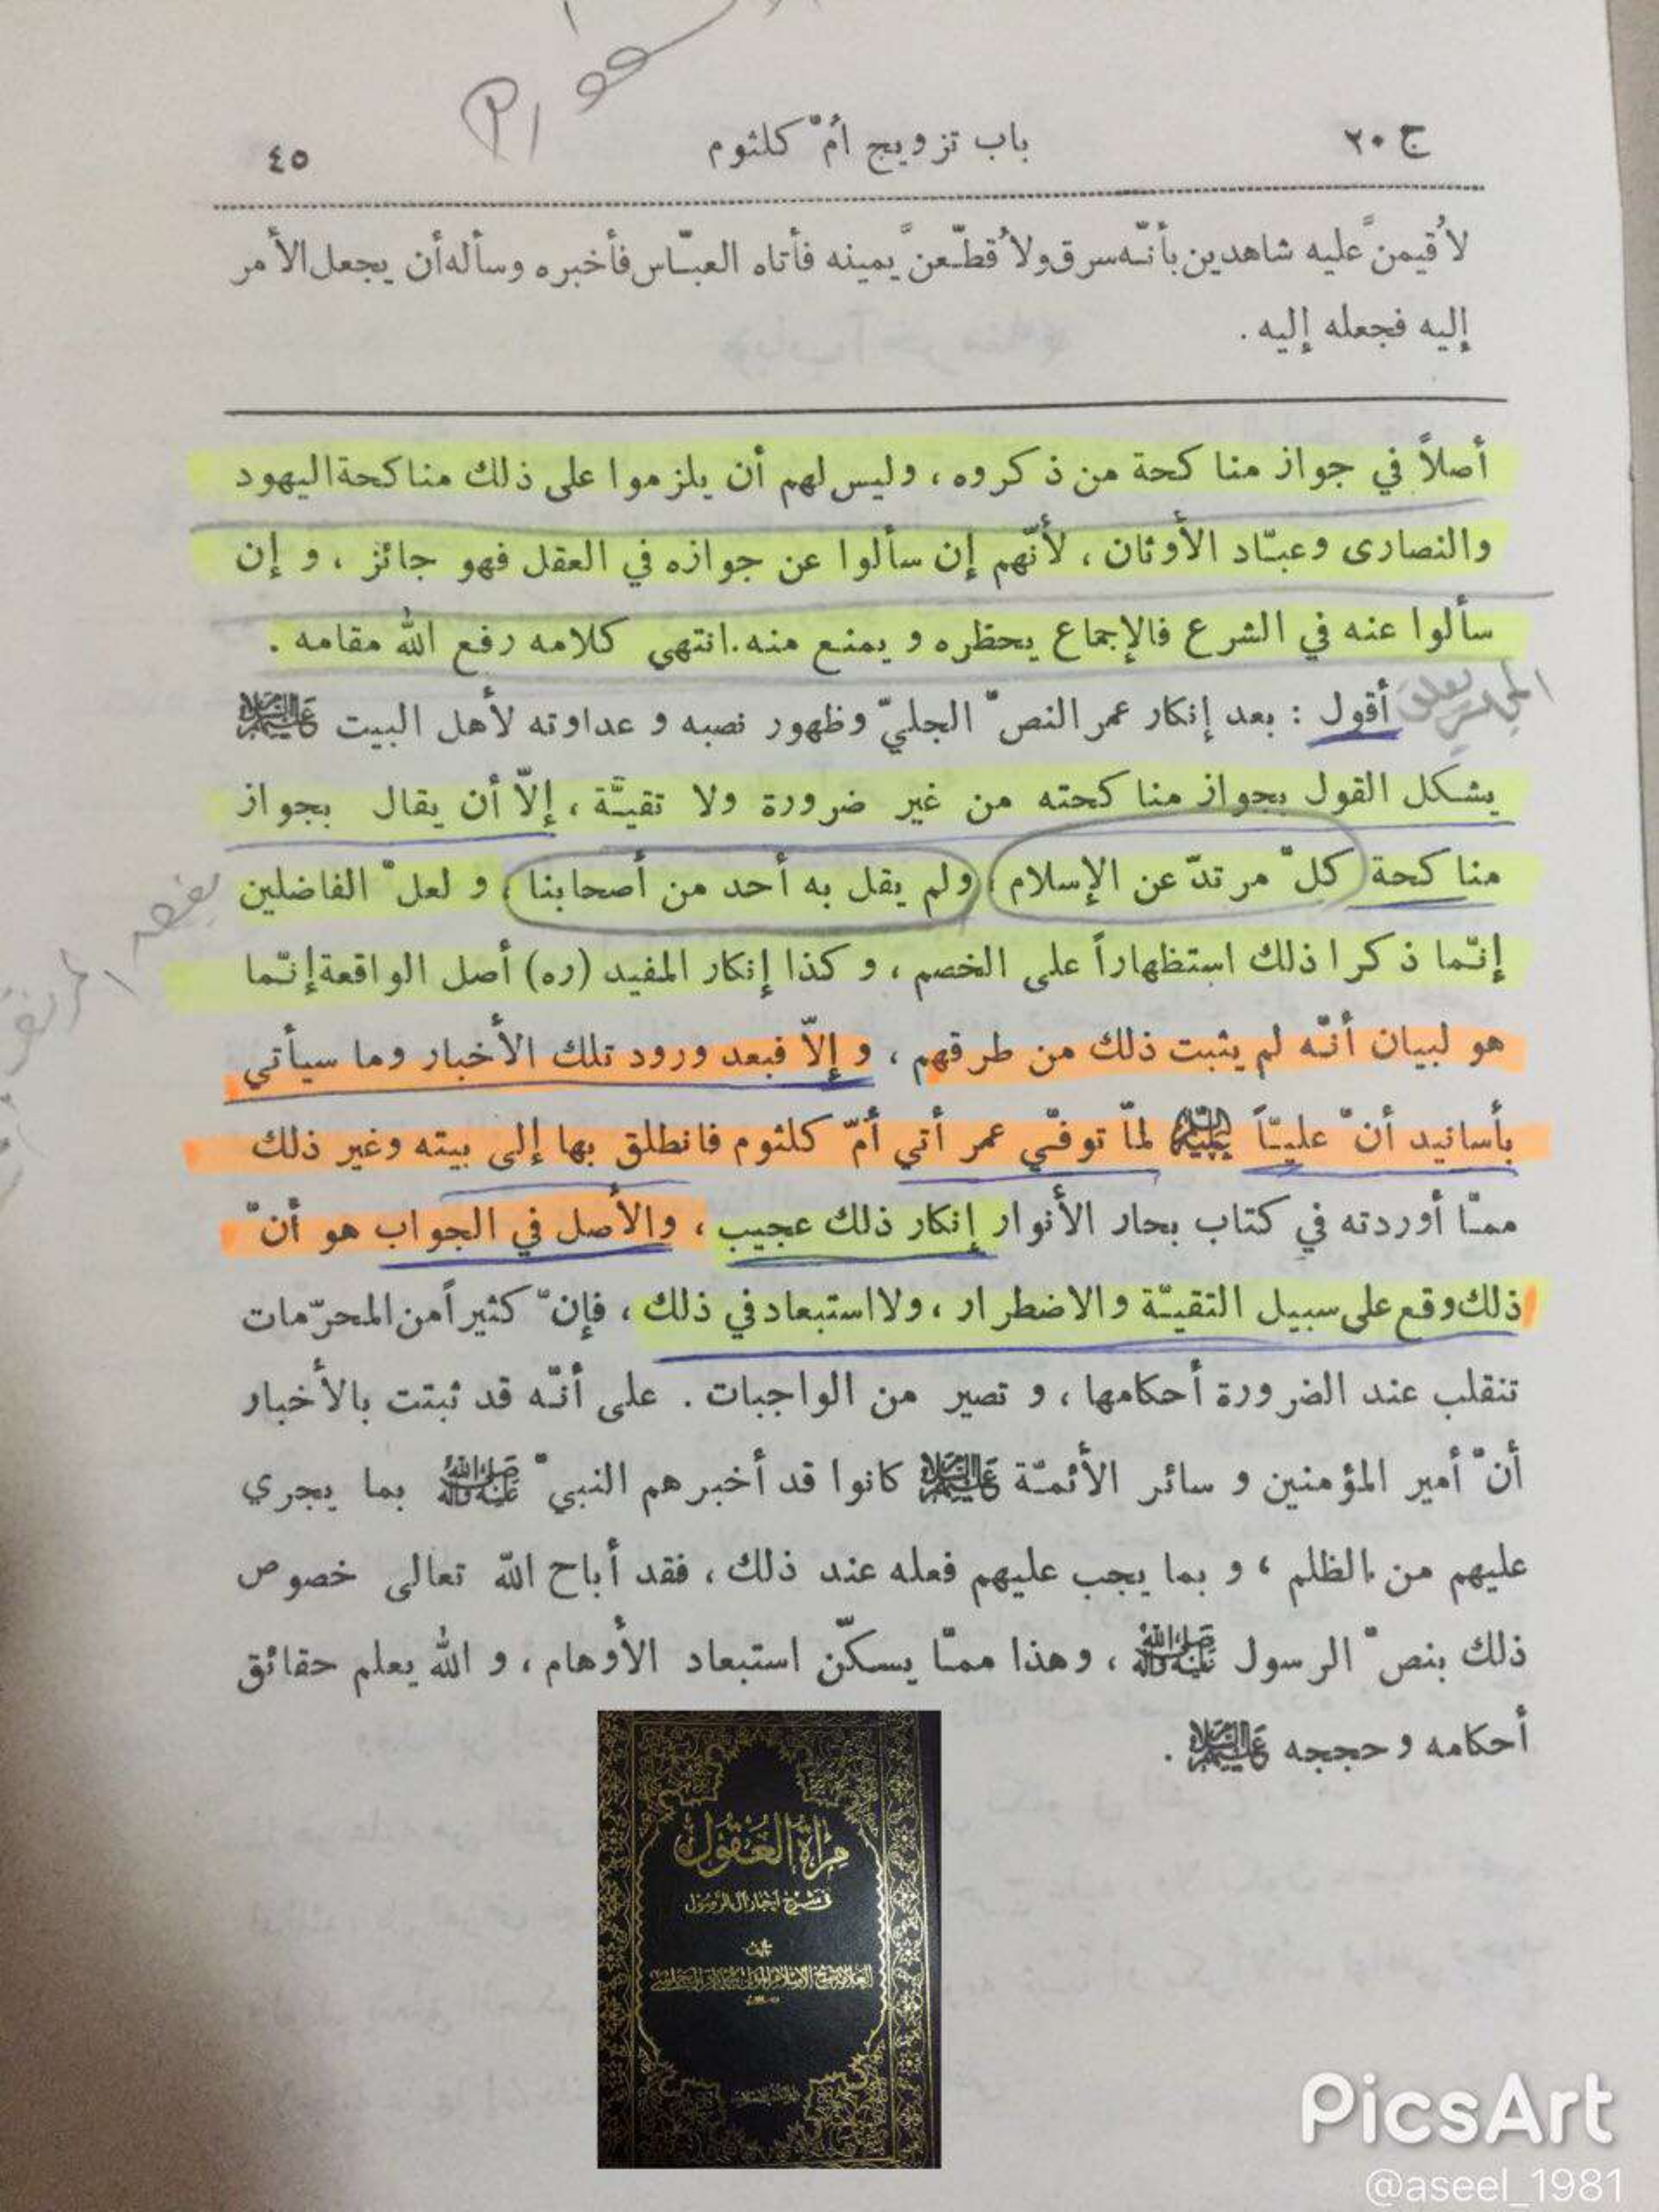 ج ٢٠ باب تزويج أمّ كلثوم ٤٥
لأُقيمنَّ عليه شاهدين بأنّه سرق ولأُقطّعنَّ يمينه فأتاه العبّاس فأخبره وسأله أن يجعل الأمر
إليه فجعله إليه .
أصلاً في جواز مناكحة من ذكروه ، وليس لهم أن يلزموا على ذلك مناكحة اليهود
والنصارى وعبّاد الأوثان ، لأنّهم إن سألوا عن جوازه في العقل فهو جائز ، و إن
سألوا عنه في الشرع فالإجماع يحظره و يمنع منه . انتهى كلامه رفع الله مقامه .
أقول : بعد إنكار عمر النصّ الجليّ وظهور نصبه و عداوته لأهل البيت عليهم السلام
يشكل القول بجواز مناكحته من غير ضرورة ولا تقيّة ، إلّا أن يقال بجواز
مناكحة كلّ مرتدّ عن الإسلام ، ولم يقل به أحد من أصحابنا ، و لعلّ الفاضلين
إنّما ذكرا ذلك استظهاراً على الخصم ، و كذا إنكار المفيد (ره) أصل الواقعة إنّما
هو لبيان أنّه لم يثبت ذلك من طرقهم ، و إلّا فبعد ورود تلك الأخبار وما سيأتي
بأسانيد أنّ عليّاً عليه السلام لمّا توفّي عمر أتى أمّ كلثوم فانطلق بها إلى بيته وغير ذلك
ممّا أوردته في كتاب بحار الأنوار إنكار ذلك عجيب ، والأصل في الجواب هو أنّ
ذلك وقع على سبيل التقيّة والاضطرار ، ولا استبعاد في ذلك ، فإنّ كثيراً من المحرّمات
تنقلب عند الضرورة أحكامها ، و تصير من الواجبات . على أنّه قد ثبتت بالأخبار
أنّ أمير المؤمنين و سائر الأئمّة عليهم السلام كانوا قد أخبرهم النبيّ صلى الله عليه وآله بما يجري
عليهم من الظلم ، و بما يجب عليهم فعله عند ذلك ، فقد أباح الله تعالى خصوص
ذلك بنصّ الرسول صلى الله عليه وآله ، وهذا ممّا يسكّن استبعاد الأوهام ، و الله يعلم حقائق
أحكامه و حججه عليهم السلام .
مرآة العقول
في شرح أخبار آل الرسول
تأليف
PicsArt
@aseel_1981